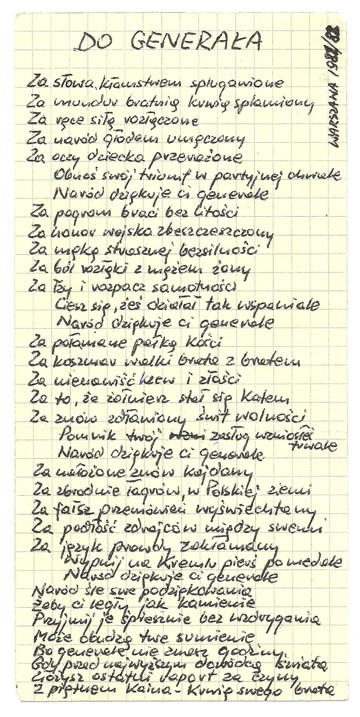 DO GENERAŁA
WARSZAWA 1981/82
Za słowa kłamstwem splugawione
Za mundur bratnią krwią splamiony
Za ręce siłą rozłączone
Za naród głodem umęczony
Za oczy dziecka przerażone
Obnoś swój triumf w partyjnej chwale
Naród dziękuje ci generale
Za pogrom braci bez litości
Za honor wojska zbeszczeszczony
Za mękę strasznej bezsilności
Za ból rozłąki z mężem żony
Za łzy i rozpacz samotności
Ciesz się, żeś działał tak wspaniale
Naród dziękuje ci generale
Za połamane pałką kości
Za koszmar walki brata z bratem
Za nienawiść krew i złości
Za to, że żołnierz stał się katem
Za znów zdławiony świt wolności
Pomnik twój zasług wzniosłeś trwale
Naród dziękuje ci generale
Za nałożone znów kajdany
Za zbrodnie łagrów, w Polskiej ziemi
Za fałsz przemówień wyświechtany
Za podłość zdrajców między swemi
Za język prawdy zakłamany
Wypnij na Kremlu pierś po medale
Naród dziękuje ci generale
Naród śle swe podziękowania
Żeby ci legły jak kamienie
Przyjmij je śpiesznie bez wzdrygania
Może obudzą twe sumienie
Bo generale nie znasz godziny
Gdy przed najwyższym dowódcą świata
Złożysz ostatni raport za czyny
Z piętnem Kaina - krwią swego brata